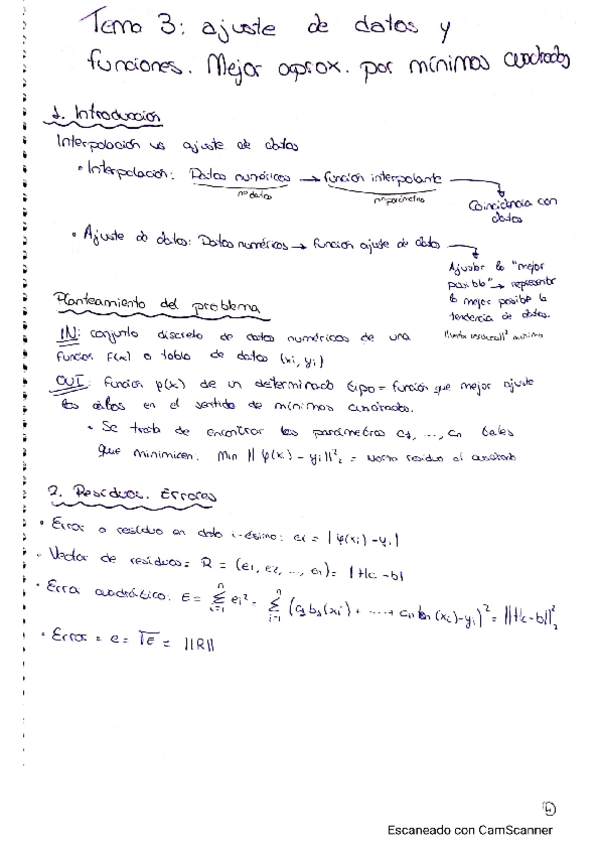 Tema 3: ajuste de datos y
funciones. Mejor aprox. por mínimos cuadrados
1. Introducción
Interpolación vs ajuste de datos
• Interpolación: Datos numéricos → función interpolante
nº datos nº parámetros
Coincidencia con
datos
• Ajuste de datos: Datos numéricos → función ajuste de datos
Ajustar lo "mejor
posible" → representar
lo mejor posible la
tendencia de datos.
mínimo
Planteamiento del problema
IN: conjunto discreto de datos numéricos de una
función F(x) o tabla de datos (xi, yi)
OUT: función φ(x) de un determinado tipo = función que mejor ajuste
los datos en el sentido de mínimos cuadrados.
• Se trata de encontrar los parámetros c1, ..., cn tales
que minimicen. Min ||φ(xi) - yi||²₂ = norma residuo al cuadrado
2. Residuos. Errores
• Error o residuo en dato i-ésimo: ei = |φ(xi) - yi|
• Vector de residuos = R = (e1, e2, ..., en) = |Hc - b|
• Error cuadrático: E = Σ ei² = Σ (c1b1(xi) + ..... + cnbn(xi) - yi)² = ||Hc - b||²₂
• Error = e = √E = ||R||
Escaneado con CamScanner